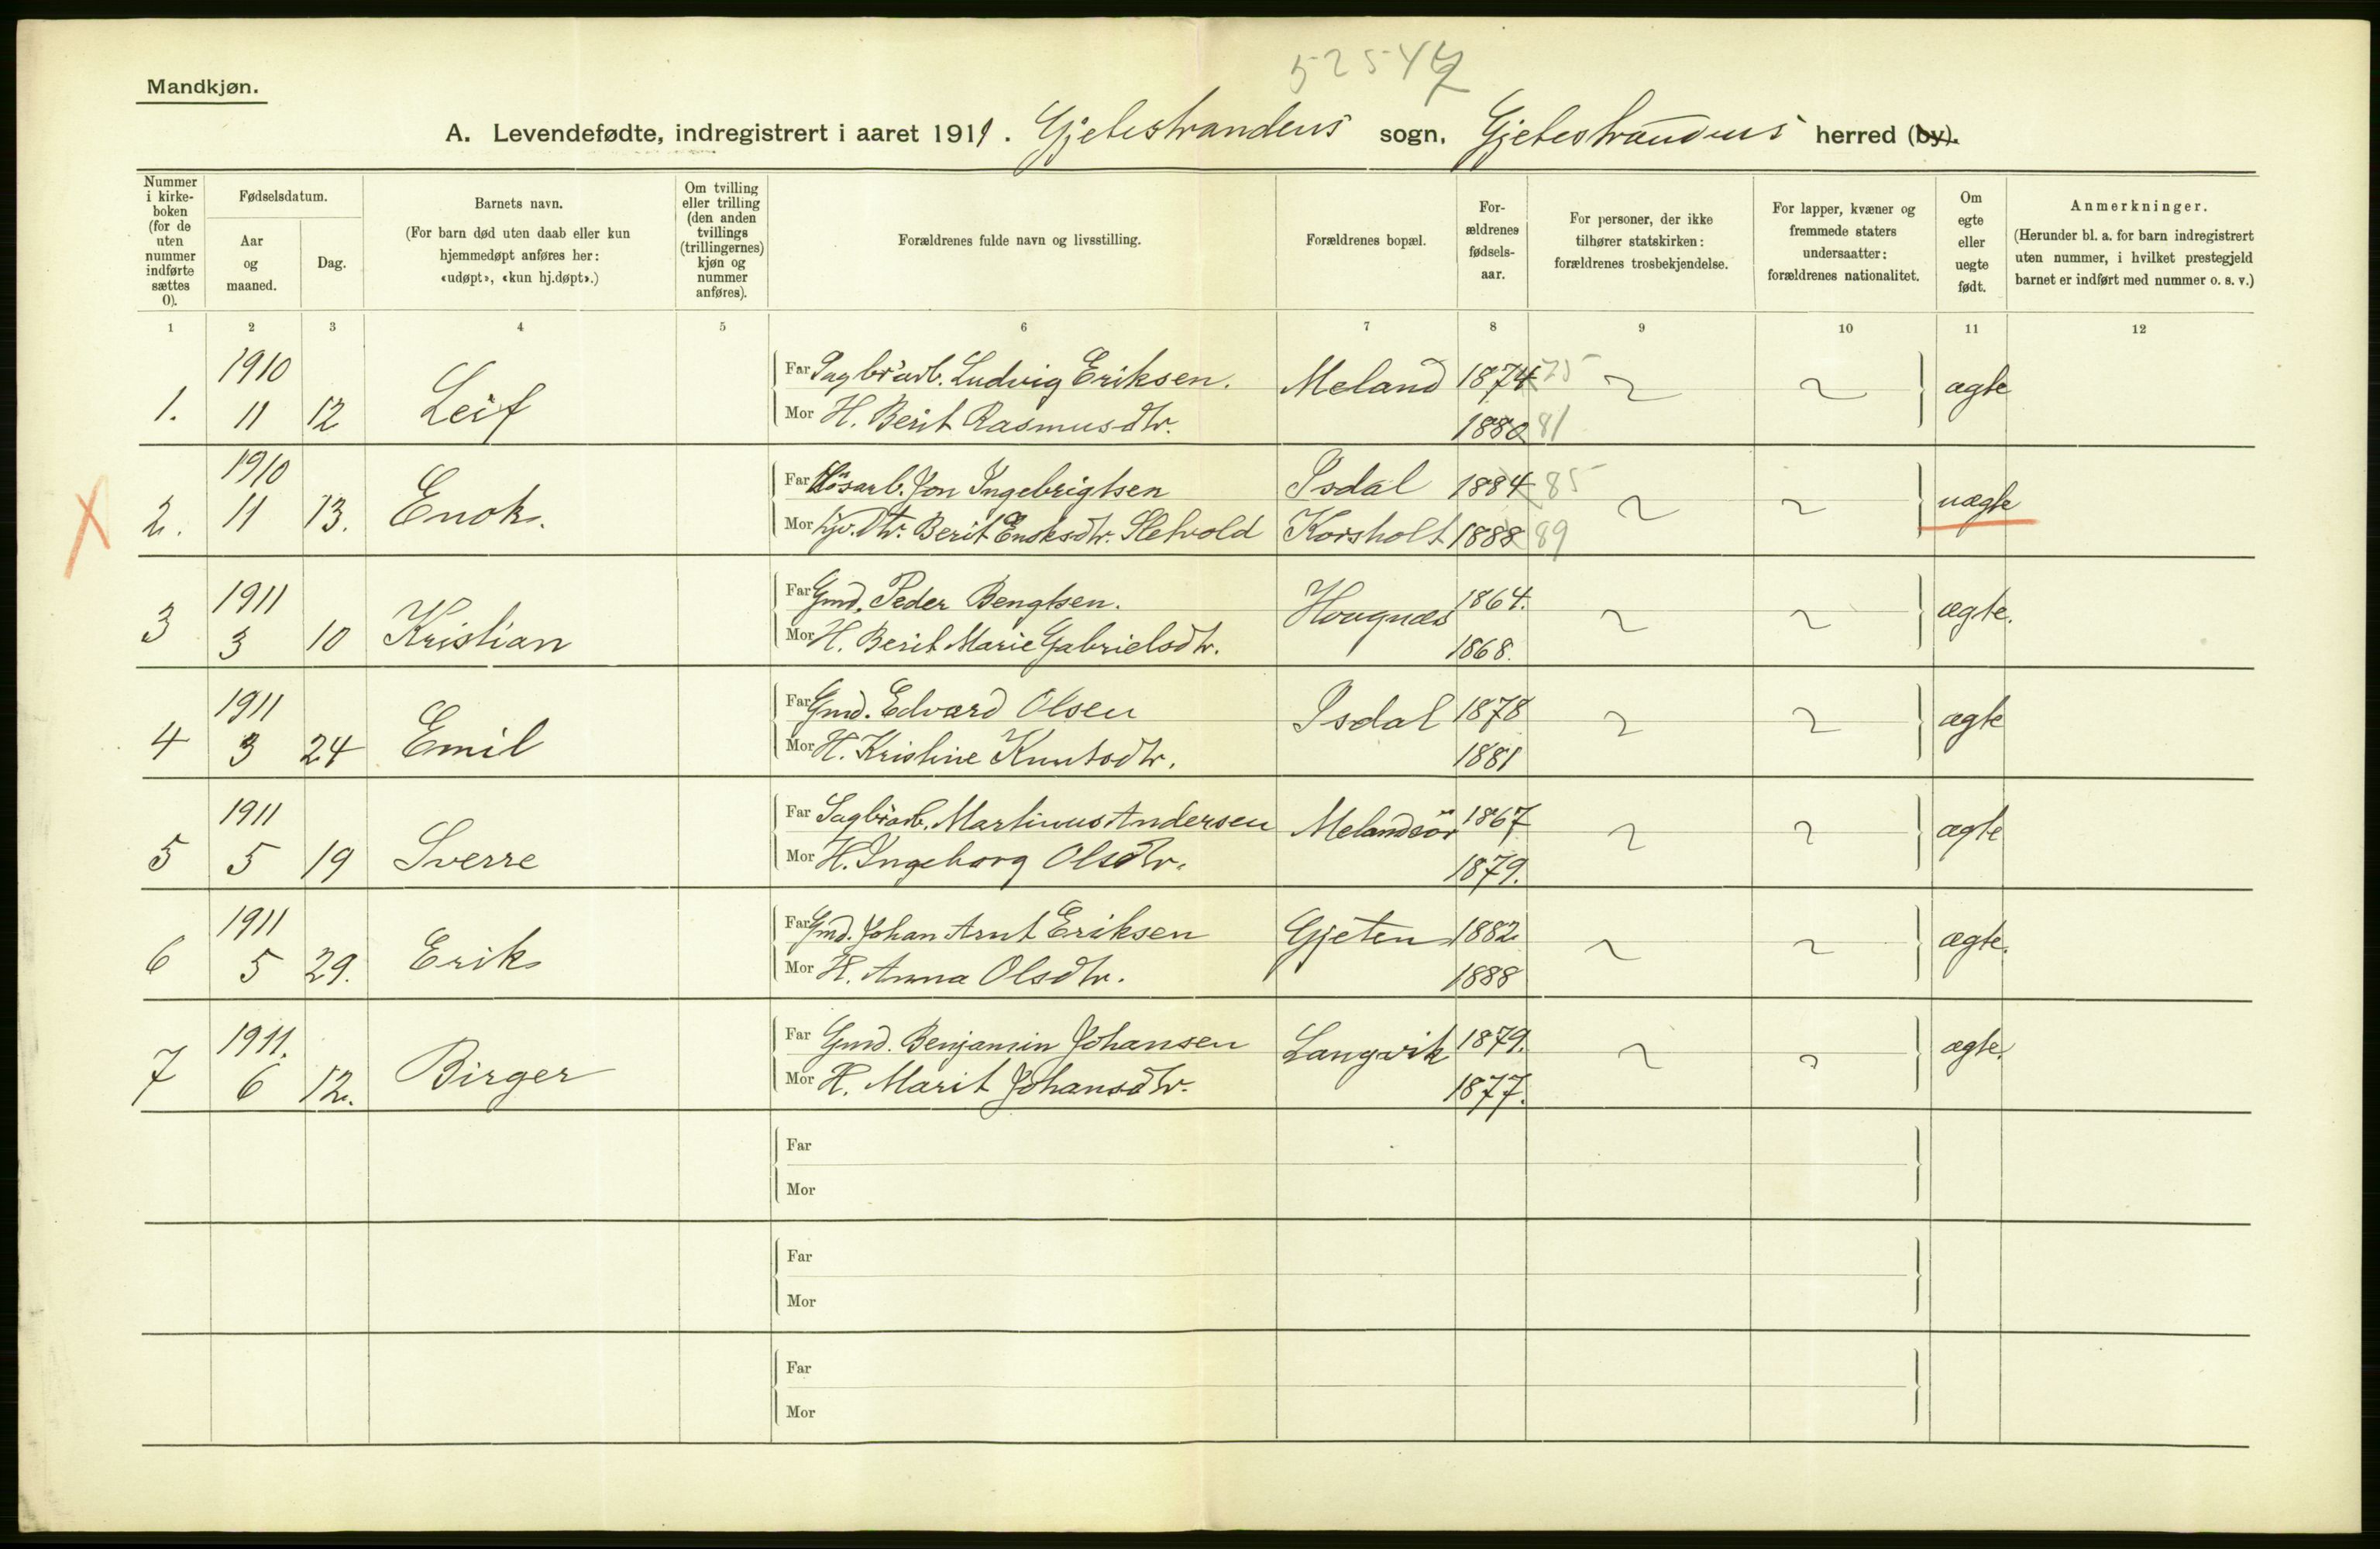 52547
Mandkjøn.
A. Levendefødte, indregistrert i aaret 1911. Gjetestrandens sogn, Gjetestrandens herred (by).
Nummer i kirke-boken (for de uten nummer indførte sættes 0).
Fødselsdatum.
Aar og maaned.
Dag.
Barnets navn.
(For barn død uten daab eller kun hjemmedøpt anføres her: «udøpt», «kun hj.døpt».)
Om tvilling eller trilling (den anden tvillings (trillingernes) kjøn og nummer anføres).
Forældrenes fulde navn og livsstilling.
Forældrenes bopæl.
For-ældrenes fødsels-aar.
For personer, der ikke tilhører statskirken: forældrenes trosbekjendelse.
For lapper, kvæner og fremmede staters undersaatter: forældrenes nationalitet.
Om egte eller uegte født.
Anmerkninger.
(Herunder bl. a. for barn indregistrert uten nummer, i hvilket prestegjeld barnet er indført med nummer o. s. v.)
1 2 3 4 5 6 7 8 9 10 11 12
1. 1910 11 12 Leif
Far Sagbr.arb. Ludvig Eriksen. Meland 1874 75 ægte
Mor H. Berit Rasmusdtr. 1880 81
X 2. 1910 11 13. Enok.
Far Jon Ingebrigtsen Isdal 1884 85 uægte
Mor Berit Enoksdtr. Sletvold Korsholt 1888 89
3 1911 3 10 Kristian
Far Gmd. Peder Bengtsen. Hougnæs 1864. ægte.
Mor H. Berit Marie Gabrielsdtr. 1868.
4 1911 3 24 Emil
Far Gmd. Edvard Olsen Isdal 1878 ægte
Mor H. Kristine Knutsdtr. 1881
5 1911 5 19 Sverre
Far Sagbr.arb. Martinus Andersen Melandsör 1867 ægte
Mor H. Ingeborg Olsdtr. 1879.
6 1911 5 29. Erik
Far Gmd. Johan Arnt Eriksen Gjeten 1882 ægte.
Mor H. Anna Olsdtr. 1888
7 1911. 6 12. Birger
Far Gmd. Benjamin Johansen Langvik 1879. ægte.
Mor H. Marit Johansdtr. 1877.
Far
Mor
Far
Mor
Far
Mor